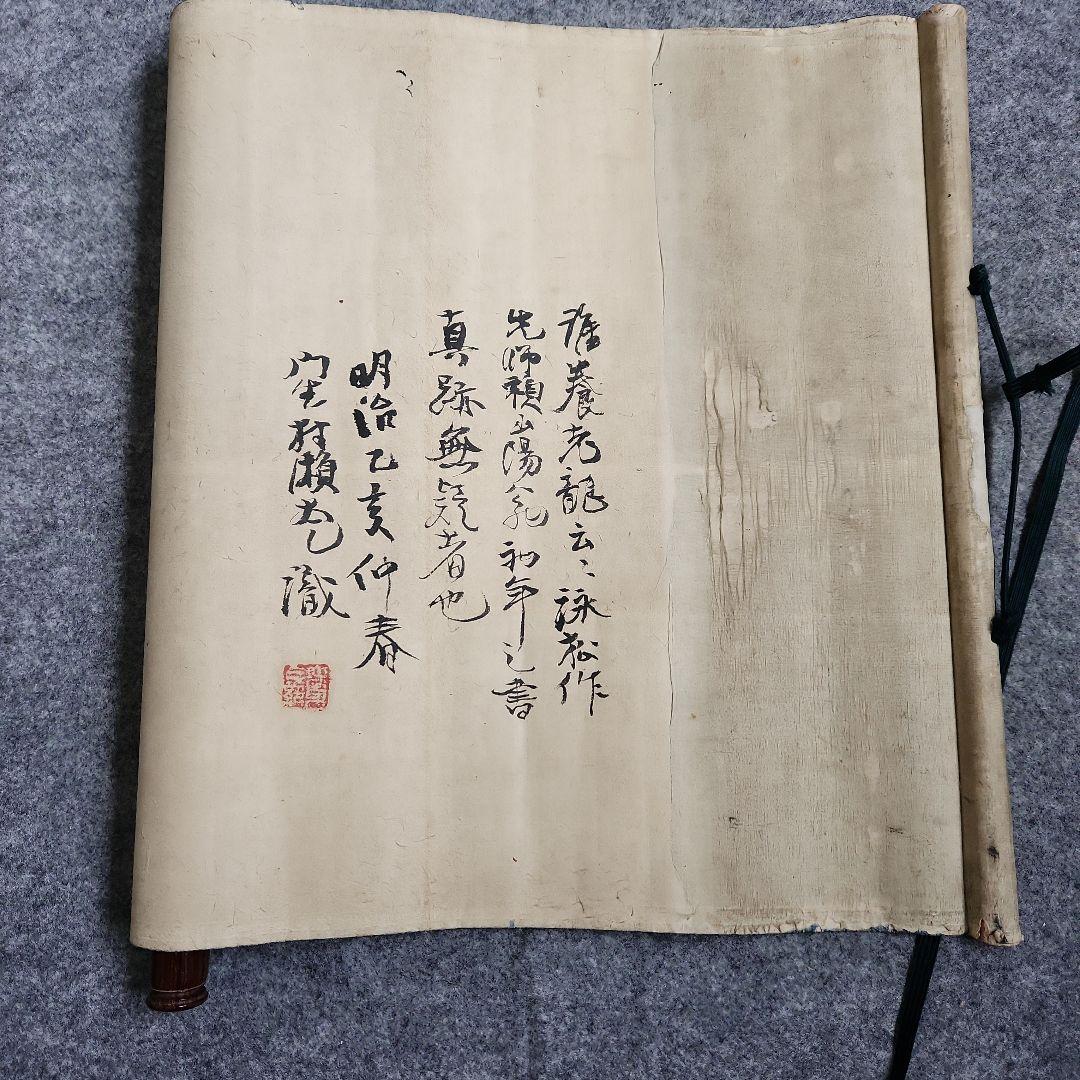 誰養老龍云々詠松作
先師頼山陽翁初年之書
真跡無疑者也
明治乙亥仲春
門生村瀬太乙識